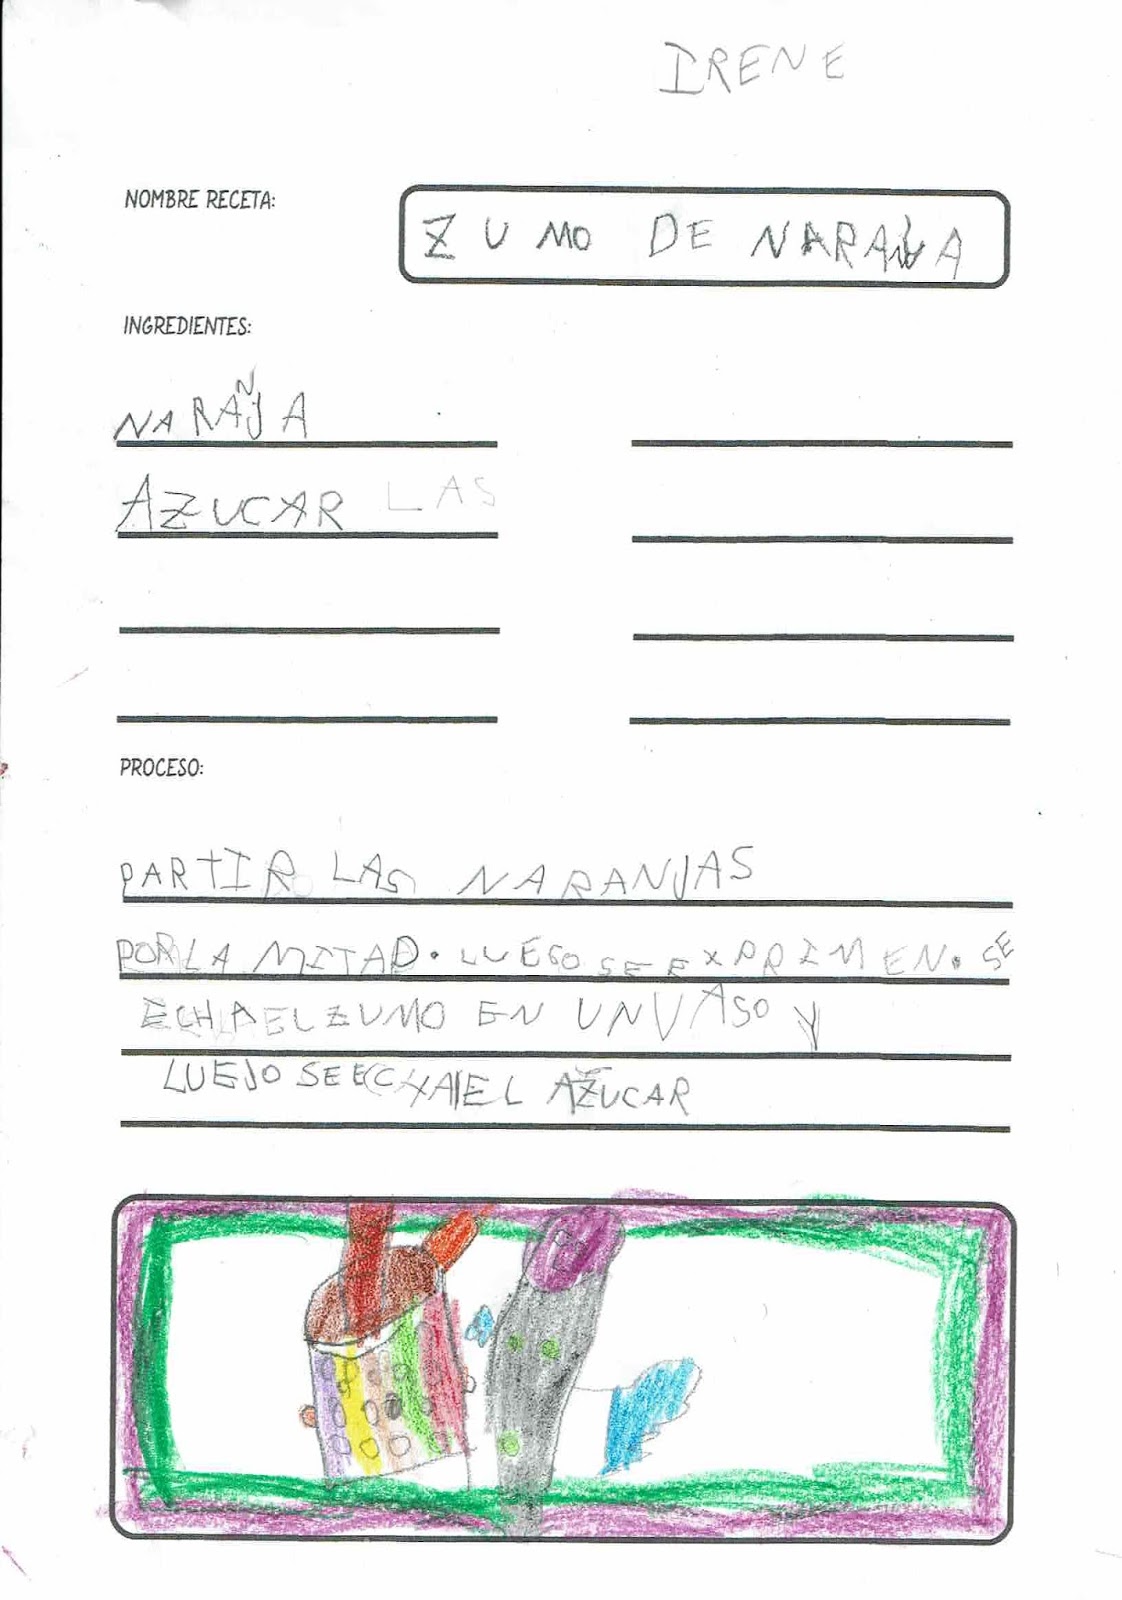 IRENE
NOMBRE RECETA:
ZUMO DE NARANJA
INGREDIENTES:
NARANJA
AZUCAR LAS
PROCESO:
PARTIR LAS NARANJAS
POR LA MITAD. LUEGO SE EXPRIMEN. SE
ECHA EL ZUMO EN UN VASO Y
LUEJO SE ECHA EL AZUCAR